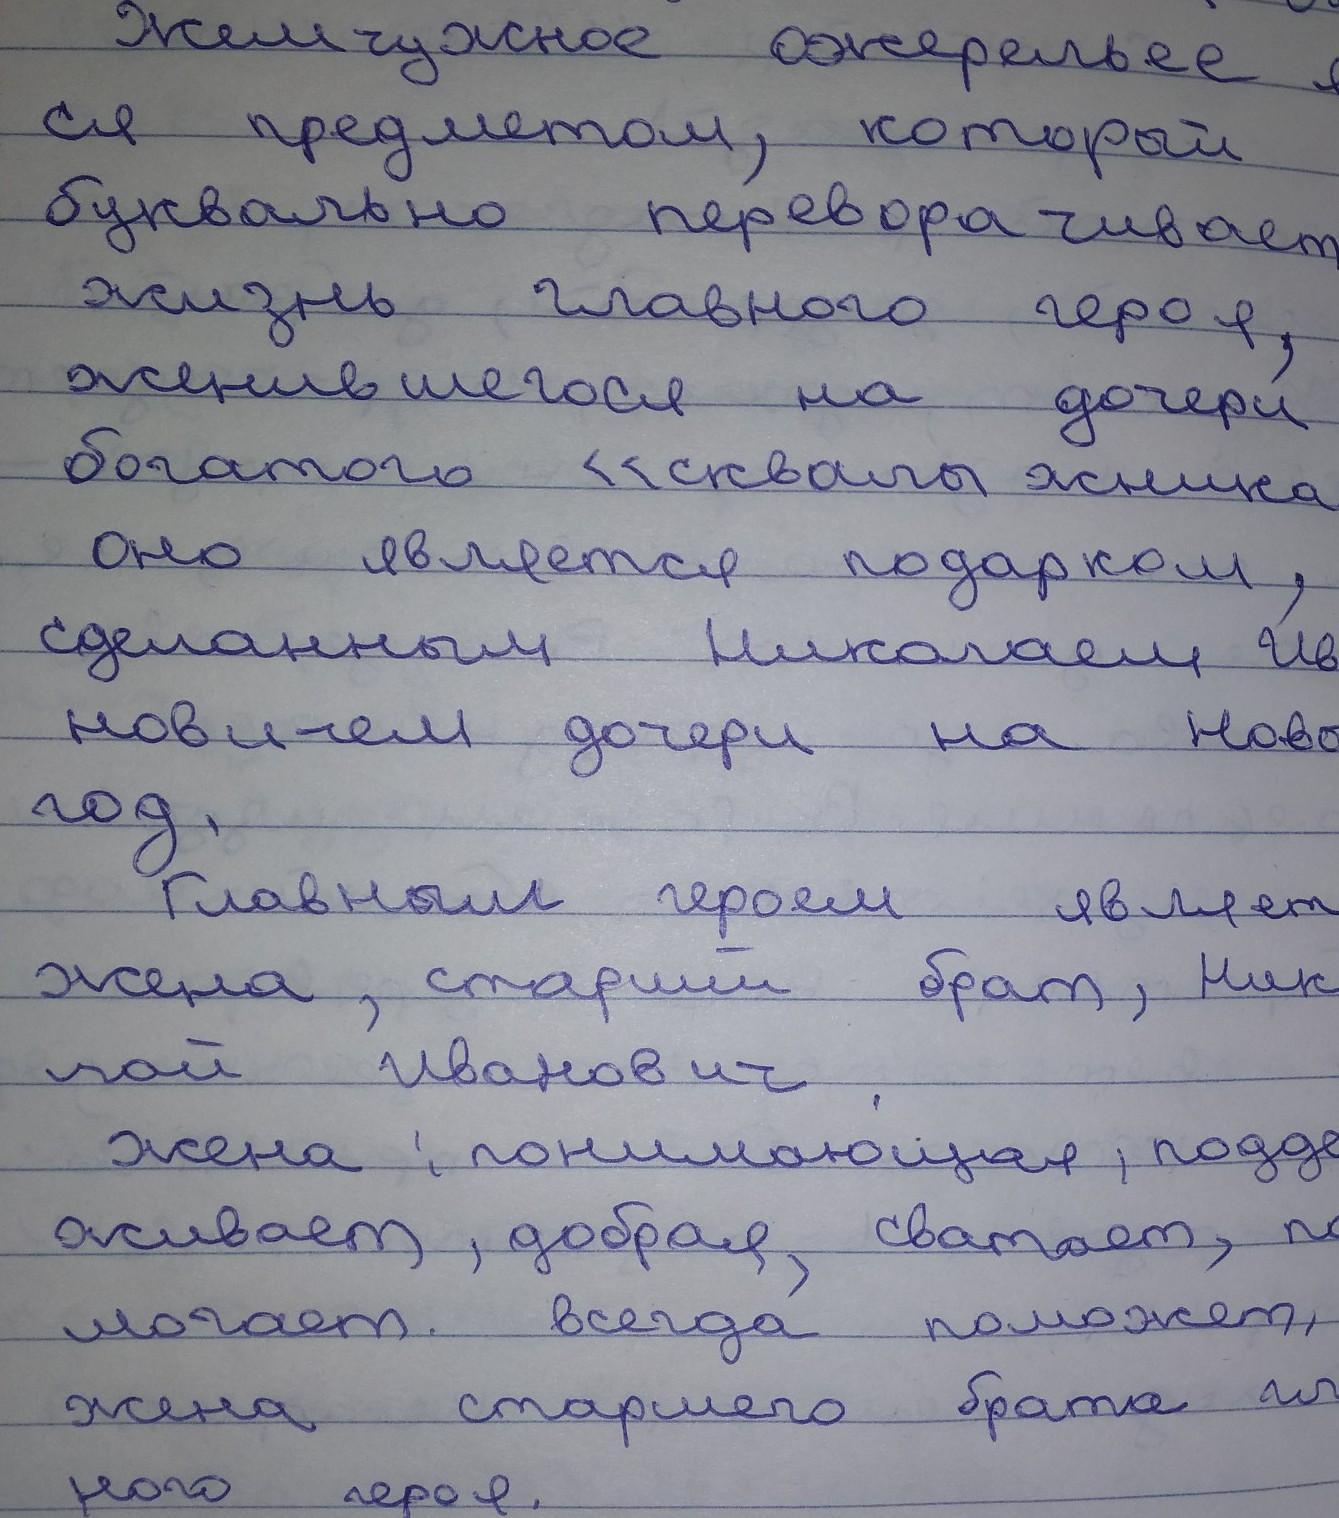 Жемчужное ожерельее я
ся предметом, который
буквально переворачивает
жизнь главного героя,
женившегося на дочери
богатого <<сквалыжника
оно является подарком,
сделанным Николаем Ив
новичем дочери на Ново
год.
Главным героем являет
жена, старший брат, Ник
лай Иванович.
жена: понимающая, подде
живает, добрая, сватает, по
могает. всегда поможет,
жена старшего брата гл
ного героя.